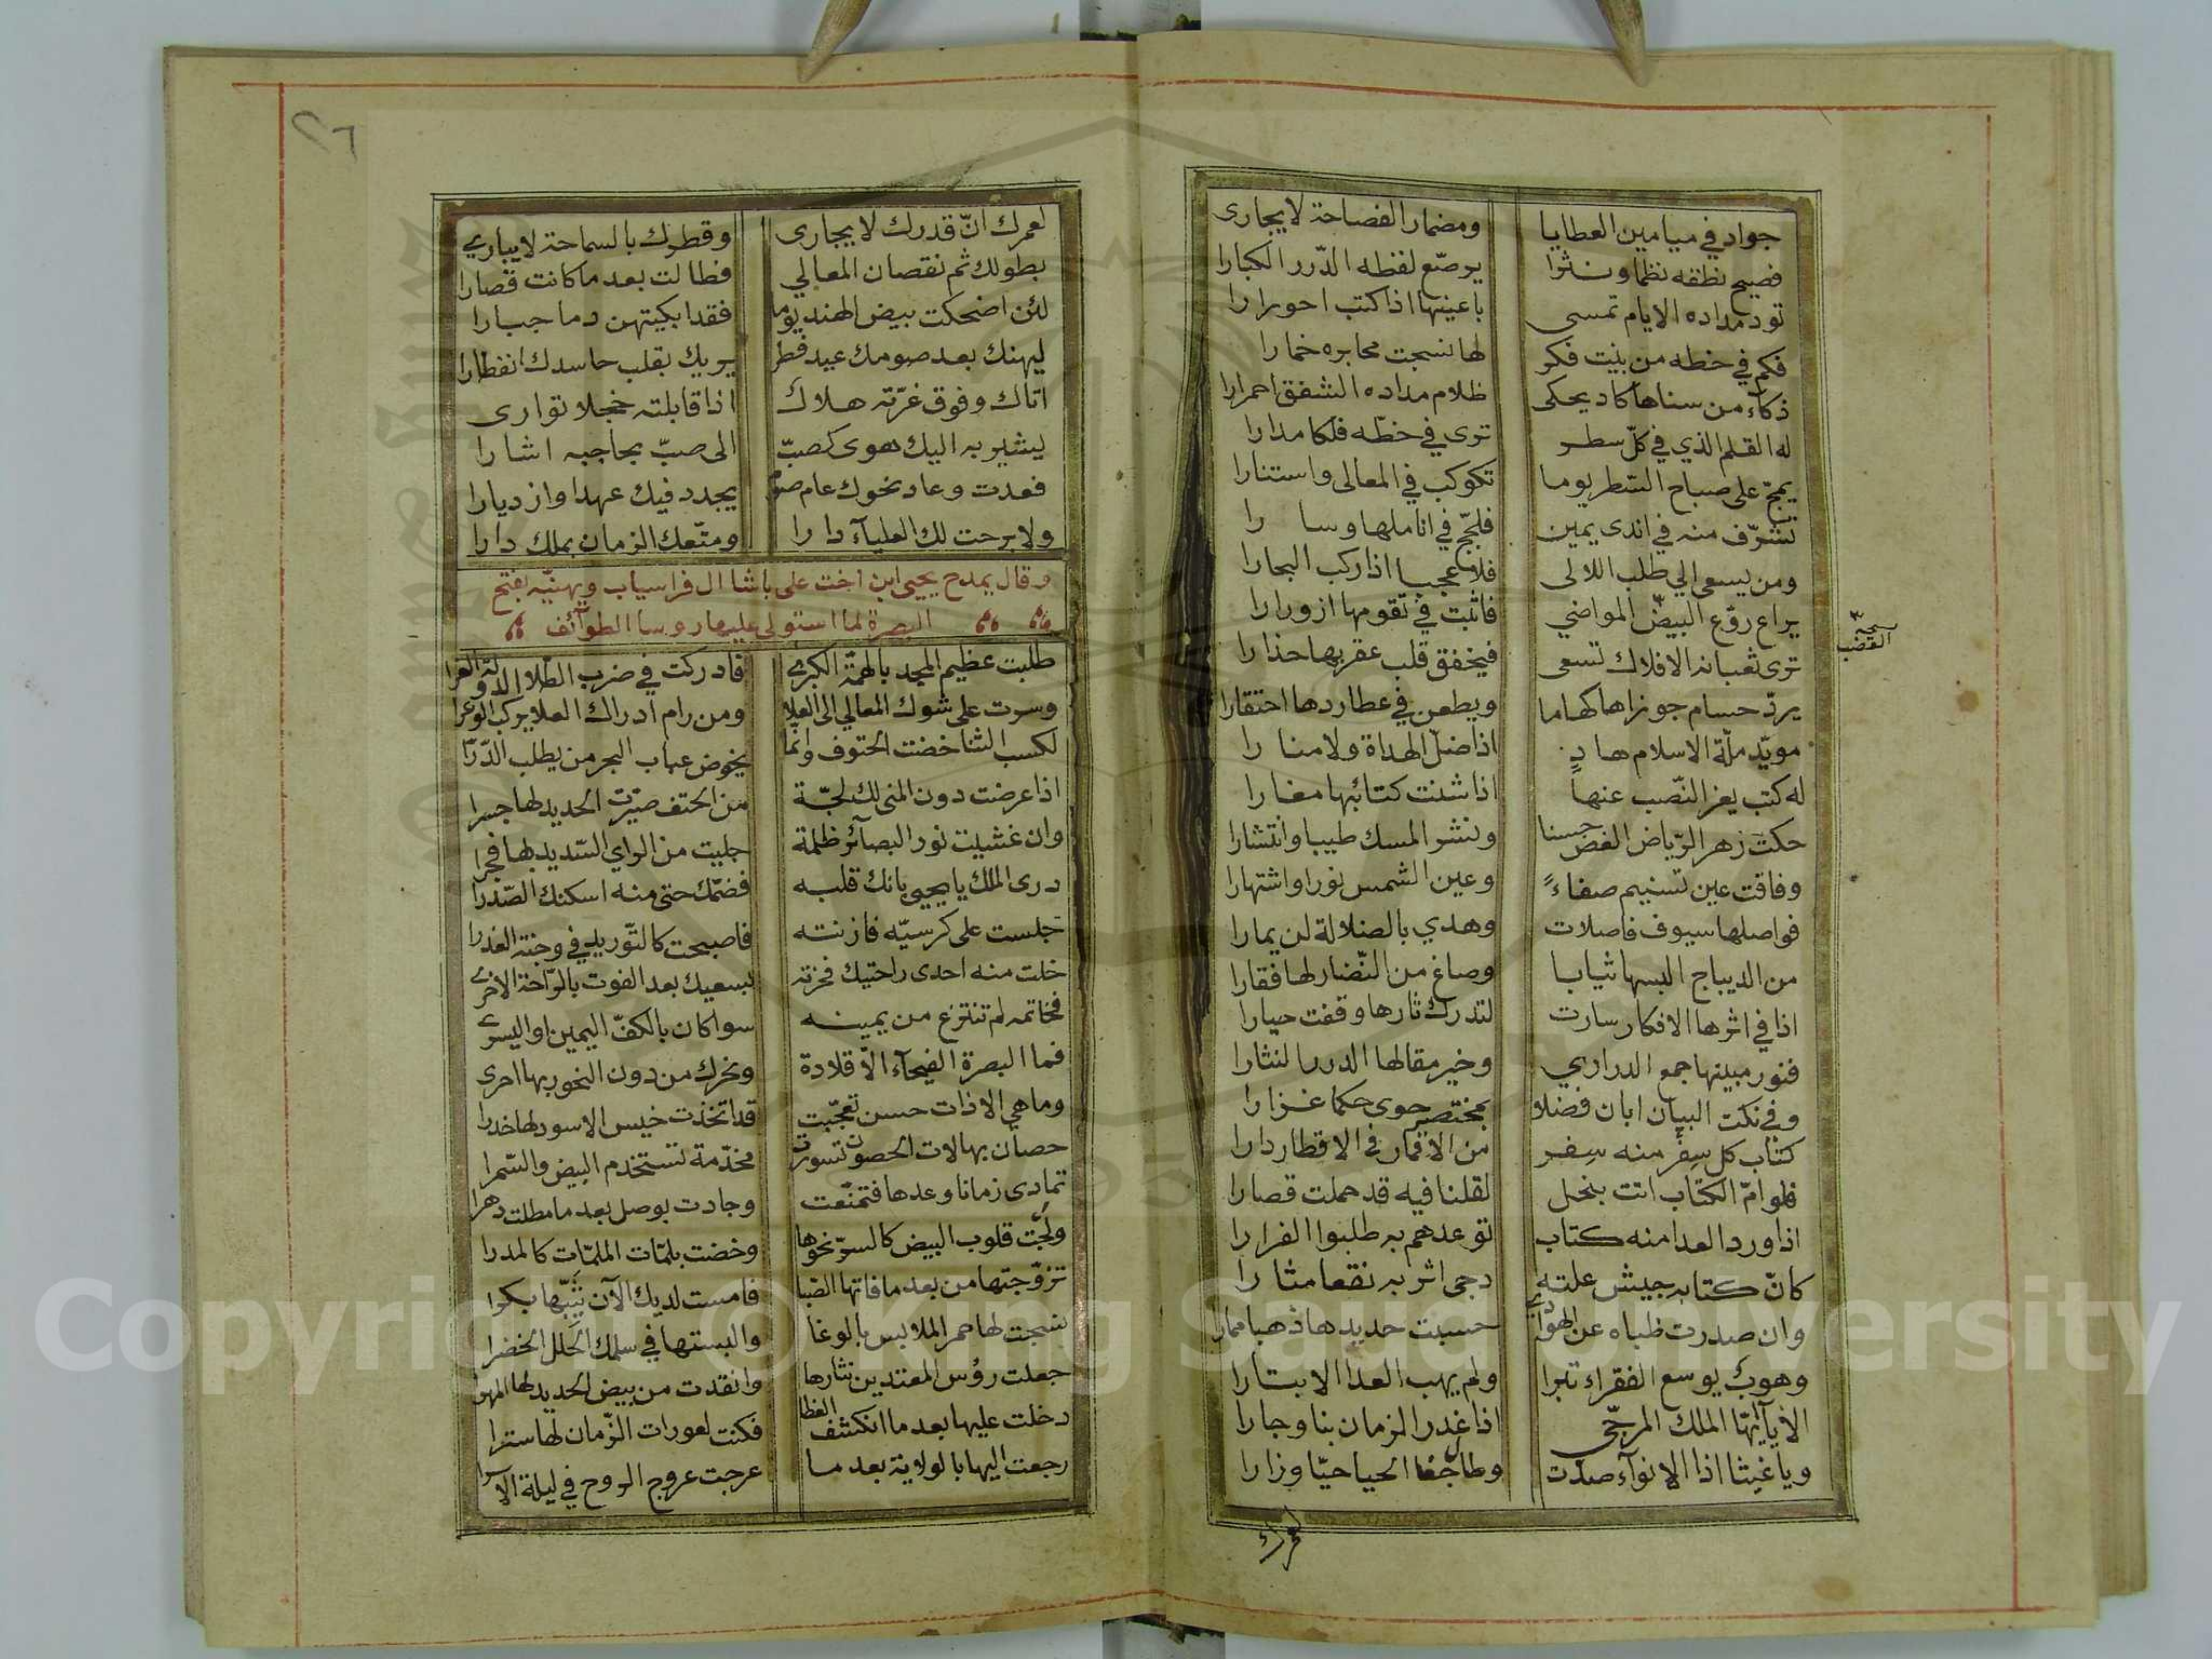 جواد في ميامين العطايا ومضمار الفصاحة لا يجارى
فصيح نطقه نظما ونثرا يرصّع لفظه الدّرر الكبارا
تود مداده الايام تمسى باعينها اذا كتب احورارا
فكم في خطه من بنت فكر لها نسجت محابره خمارا
ذكاء من سناها كاد يحكى ظلام مداده الشفق احمرارا
له القلم الذي في كلّ سطر ترى في خطّه فلكا مدارا
يمجّ على صباح السّطر يوما تكوكب في المعالى واستنارا
تشرّف منه في اندى يمين فلجّج في اناملها وسا را
ومن يسعى الي طلب اللالى فلا عجبا اذا ركب البحارا
يراع روّع البيض المواضي فاثبت في تقومها ازورارا
نسخة القضب
ترى ثعبانه الافلاك تسعى فيخفق قلب عقربها حذارا
يردّ حسام جوزاها كهاما ويطعن في عطاردها احتقارا
مويّد ملّة الاسلام هاد اذا ضلّ الهداة ولا منا را
له كتب يعز النّصب عنها اذا شنت كتائبها مغارا
حكت زهر الرّياض الغض حسنا ونشر المسك طيبا وانتشارا
وفاقت عين تسنيم صفاءً وعين الشمس نورا واشتهارا
فواصلها سيوف فاصلات وهدي بالضلالة لن يمارا
من الديباج البسها ثيابا وصاغ من النّضار لها فقارا
اذا في اثرها الافكار سارت لتدرك ثارها وقفت حيارا
فنور مبينها جمع الدراري وخير مقالها الدرر النثارا
وفي نكت البيان ابان فضلا بمختصر حوى حكما غزارا
كتاب كل سِفر منه سِفر من الاقمار في الاقطار دارا
فلو امّ الكتاب اتت بنحل لقلنا فيه قد حملت قصارا
اذا ورد العدا منه كتاب توعدهم به طلبوا الفرارا
كانّ كتابه جيش علته دجى اثر به نقعا مثا را
وان صدرت ظباه عن الهوادي حسبت حديدها ذهبا ممارا
وهوب يوسع الفقراء تبرا ولم يهب العدا الا بتارا
الا يا ايّها الملك المرجّى اذا غدر الزمان بنا وجارا
ويا غيثا اذا الانواء صدّت وطال جفا الحيا حيّا وزارا
لعمرك
٢٦
لعمرك انّ قدرك لا يجارى وقطرك بالسماحة لا يبارى
بطولك ثم نقصان المعالي فطالت بعد ما كانت قصارا
لئن اضحكت بيض الهند يوما فقد ابكيتهن دما جبارا
ليهنك بعد صومك عيد فطر يريك بقلب حاسدك انفطارا
اتاك وفوق غرّته هلاك اذا قابلته خجلا توارى
يشير به اليك هوى كصبّ الى صبّ بحاجبه اشارا
فعدت وعاد نحوك عام صوم يجدد فيك عهدا وازديارا
ولا برحت لك العلياء دا را ومتّعك الزمان بملك دارا
وقال يمدح يحيى ابن اخت على باشا ال فراسياب ويهنيّه بفتح
البصرة لما استولى عليها روسا الطوآئف
طلبت عظيم المجد بالهمّة الكبرى فادركت في ضرب الطّلا الدولة الغرا
وسرت على شوك المعالي الى العلا ومن رام ادراك العلا يركب الوعرا
لكسب الثنا خضت الحتوف وانّما يخوض عباب البحر من يطلب الدّرّا
اذا عرضت دون المنى لك لجّة من الحتف صيّرت الحديد لها جسرا
وان غشيت نور البصائر ظلمة جليت من الراي السّديد لها فجرا
درى الملك يا يحيى بانك قلبه فضمّك حتى منه اسكنك الصّدرا
جلست على كرسيّه فازنته فاصبحت كالتّوريد في وجنة العذرا
خلت منه احدى راحتيك فحزته بسعيك بعد الفوت بالرّاحة الاخرى
فخاتمه لم تنتزع من يمينه سوا كان بالكفّ اليمين او اليسرى
فما البصرة الفيحآء الّا قلادة ونحرك من دون النحور بها احرى
وما هي الا ذات حسن تعجّبت قد اتخذت خيس الاسود لها خدرا
حصان بها لات الحصون تسورت مخدّمة تستخدم البيض والسّمرا
تمادى زمانا وعدها فتمنّعت وجادت بوصل بعد ما مطلت دهرا
ولجّت قلوب البيض كالسرّ نحوها وخضت بلمّات الملمّات كالمدرا
تزوّجتها من بعد ما فاتها الصّبا فامست لديك الآن ثيّبها بكرا
نسجت لها حمر الملابس بالوغا والبستها في سلمك الحلل الخضرا
جعلت رؤس المعتدين نثارها وانقدت من بيض الحديد لها المهرا
دخلت عليها بعد ما انكشف الغطا فكنت لعورات الزّمان لها سترا
رجعت اليها بالولاية بعد ما عرجت عروج الروح في ليلة الاسرا